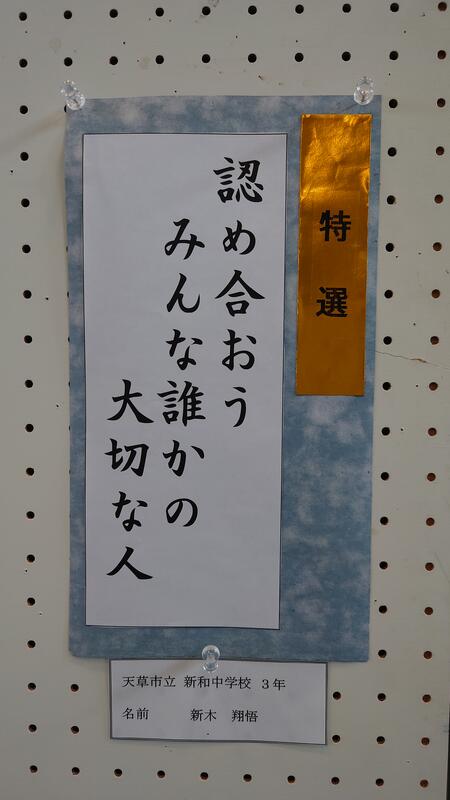 特選
認め合おう
みんな誰かの
大切な人
天草市立 新和中学校 3年
名前 新木 翔悟